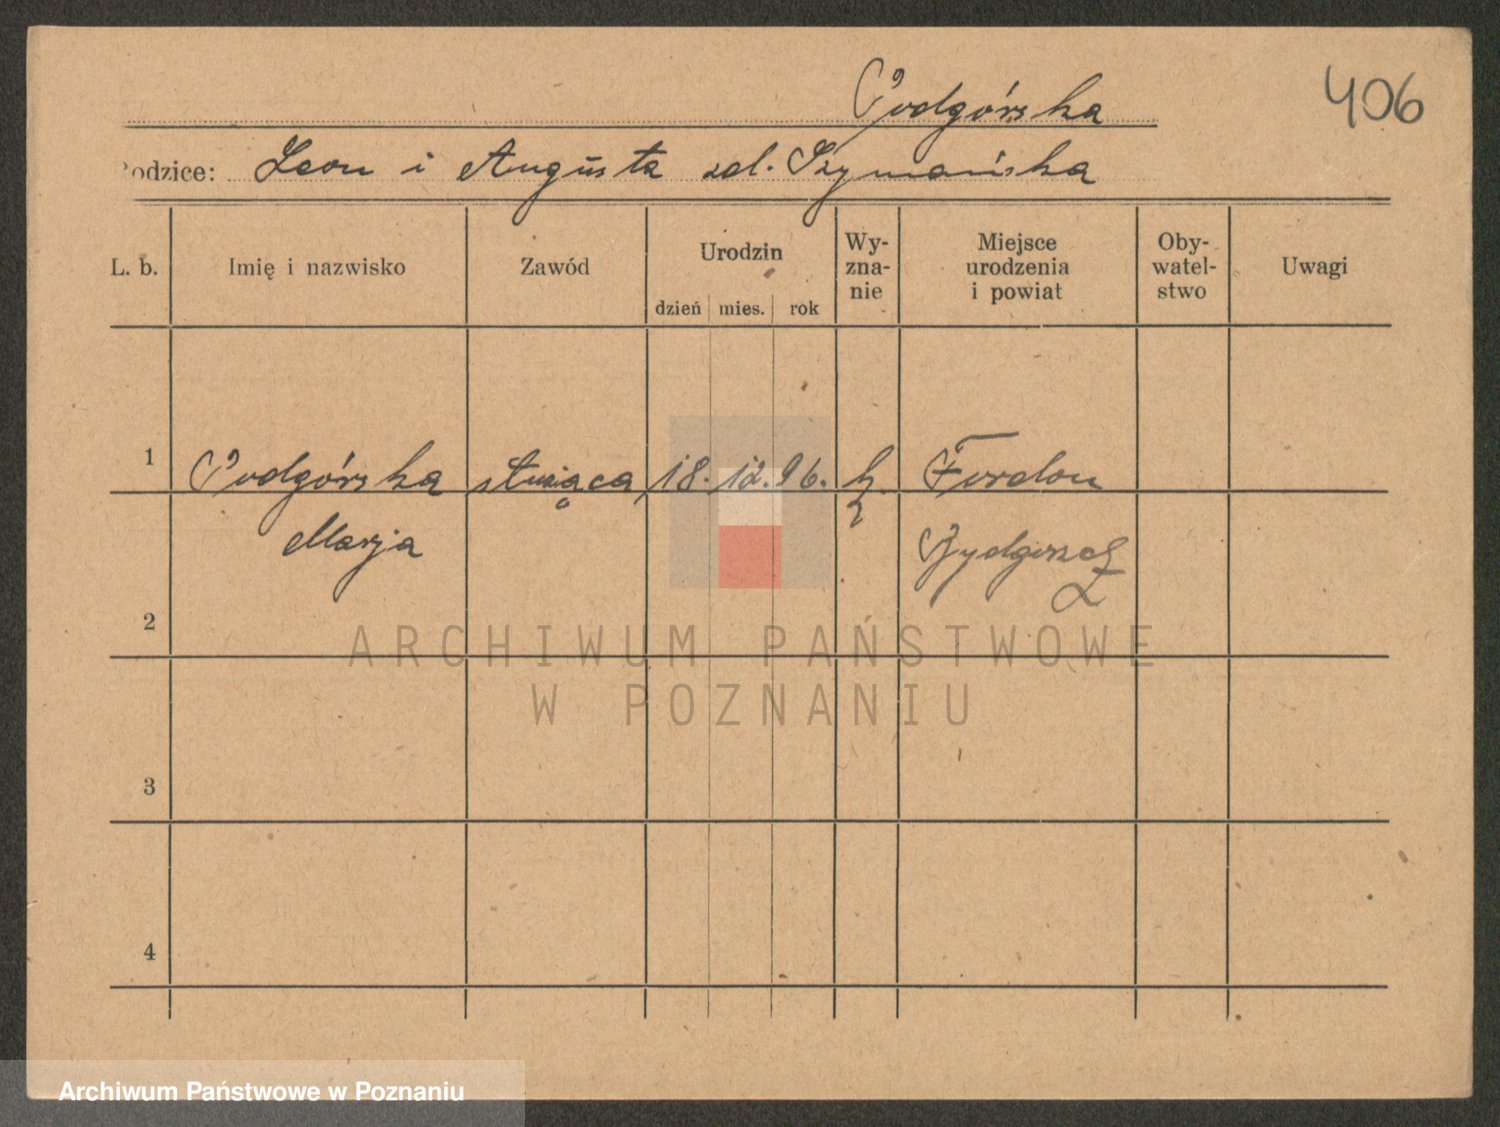 Podgórska
406
Rodzice: Leon i Augusta zd. Szymańska
L. b.
Imię i nazwisko
Zawód
Urodzin
dzień mies. rok
Wy-
zna-
nie
Miejsce
urodzenia
i powiat
Oby-
watel-
stwo
Uwagi
1 Podgórska służąca 18. 12. 96. k. Fordon
Marja
Bydgoszcz
2
ARCHIWUM PAŃSTWOWE
W POZNANIU
3
4
Archiwum Państwowe w Poznaniu